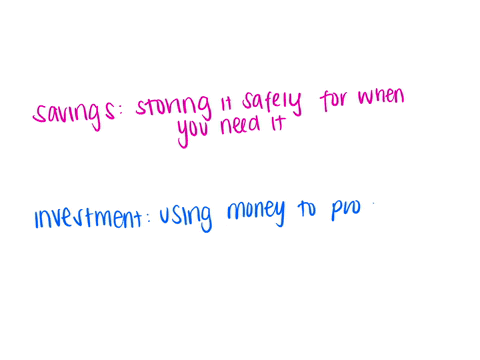 savings: storing it safely for when
you need it
investment: using money to pro